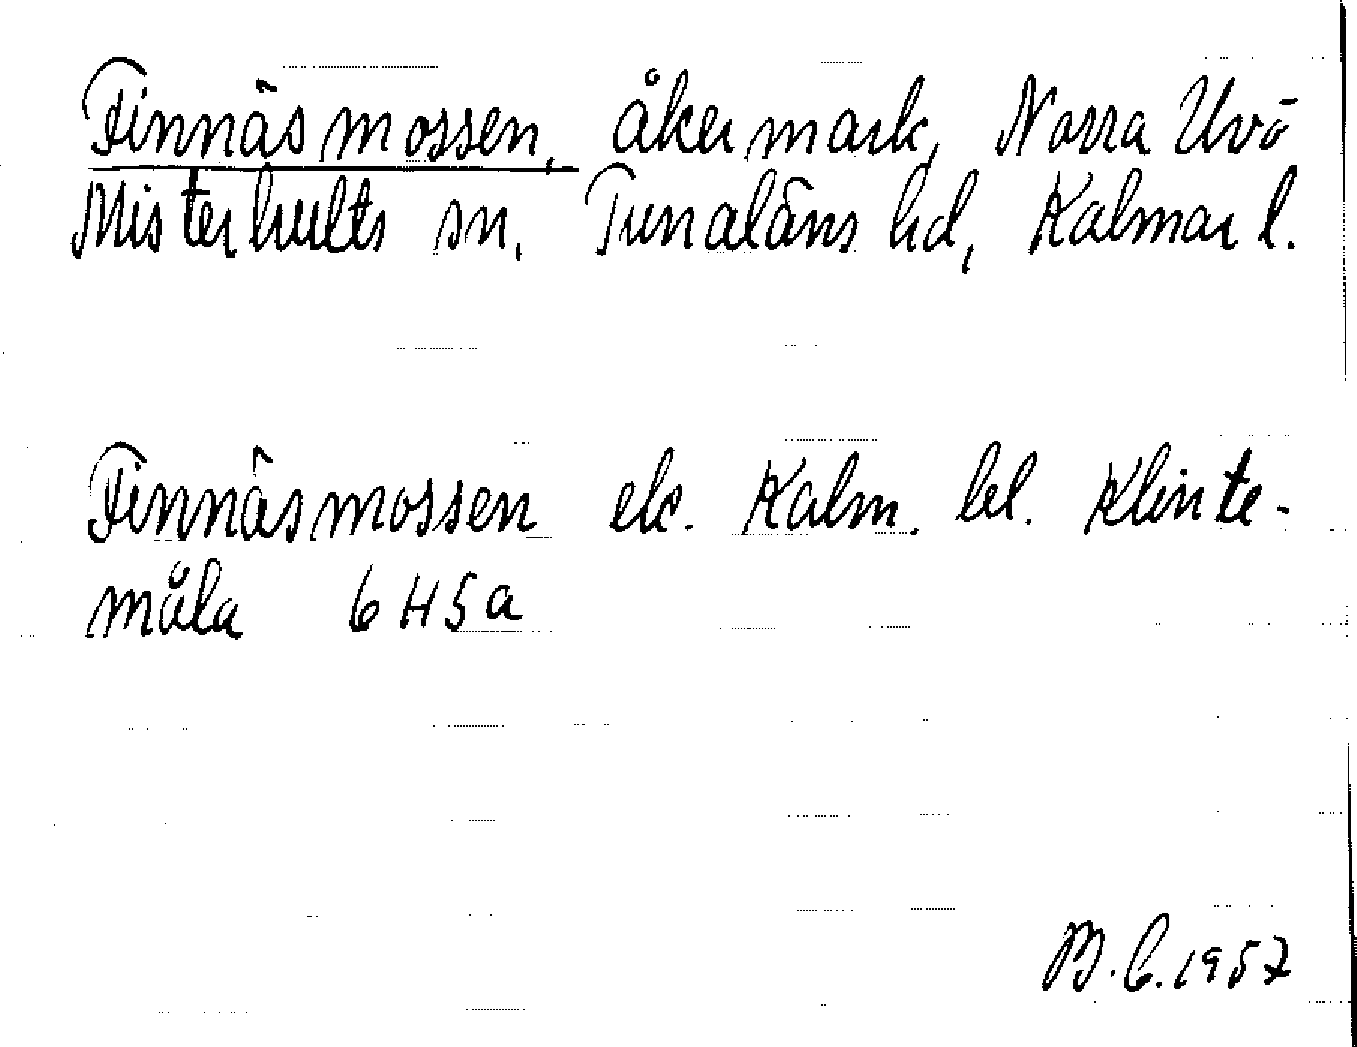 Finnäsmossen, åkermark, Norra Uvö
Misterhults sn, Tunaläns hd, Kalmar l.
Finnäsmossen ek. Kalm. bl. Klinte-
måla 6H5a
B.C. 1957